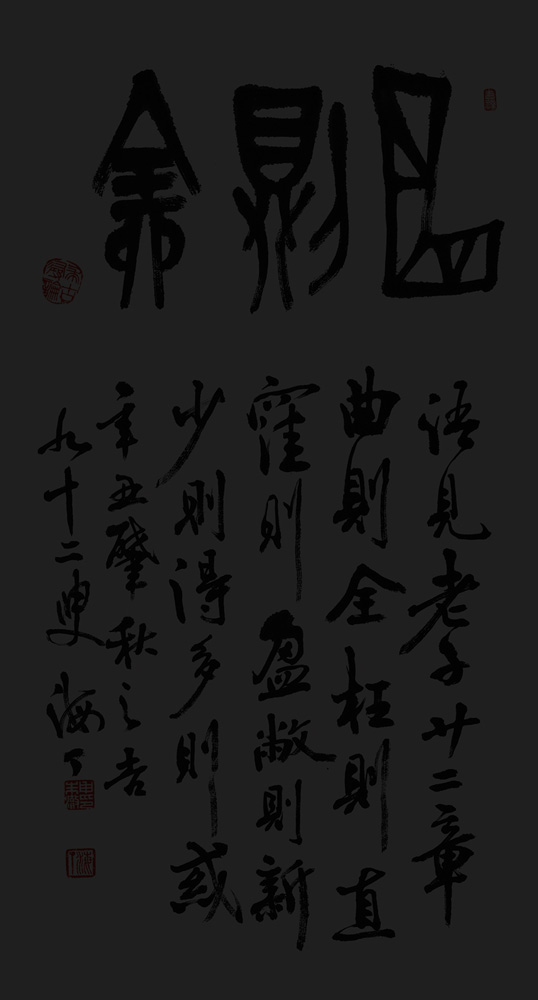 曲則全
語見老子廿二章
曲則全枉則直
窪則盈敝則新
少則得多則惑
辛丑肇秋之吉
九十二叟海丁